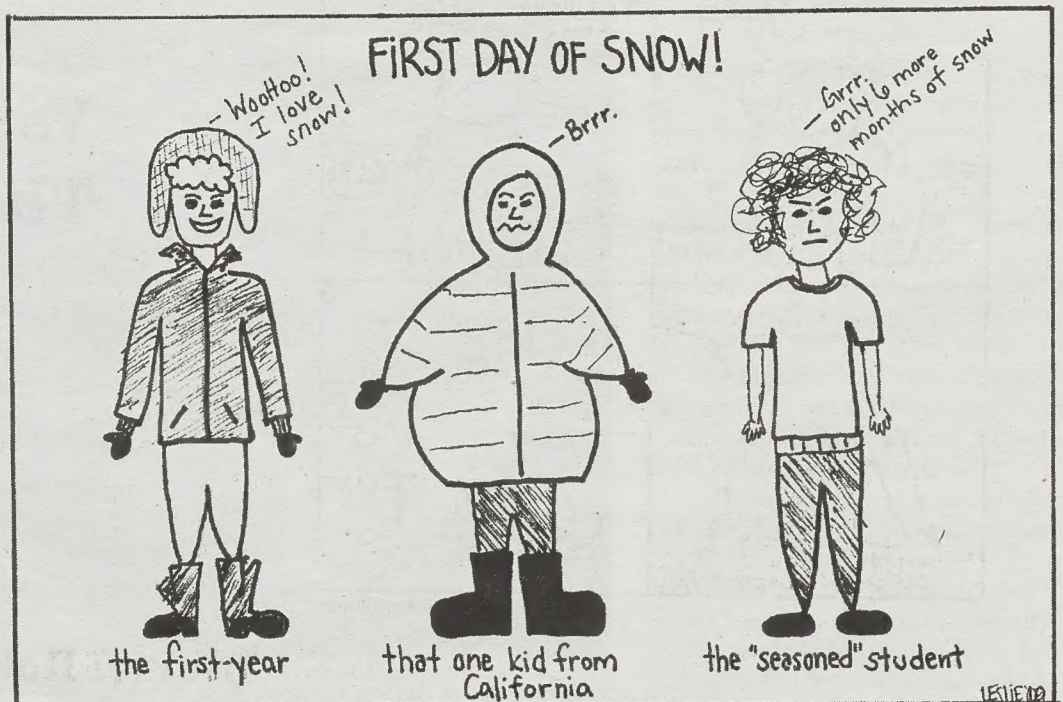 FIRST DAY OF SNOW!
- WooHoo!
I love
snow!
- Brrr.
- Grrr.
only 6 more
months of snow
the first-year
that one kid from
California
the "seasoned" student
LESLIE '09